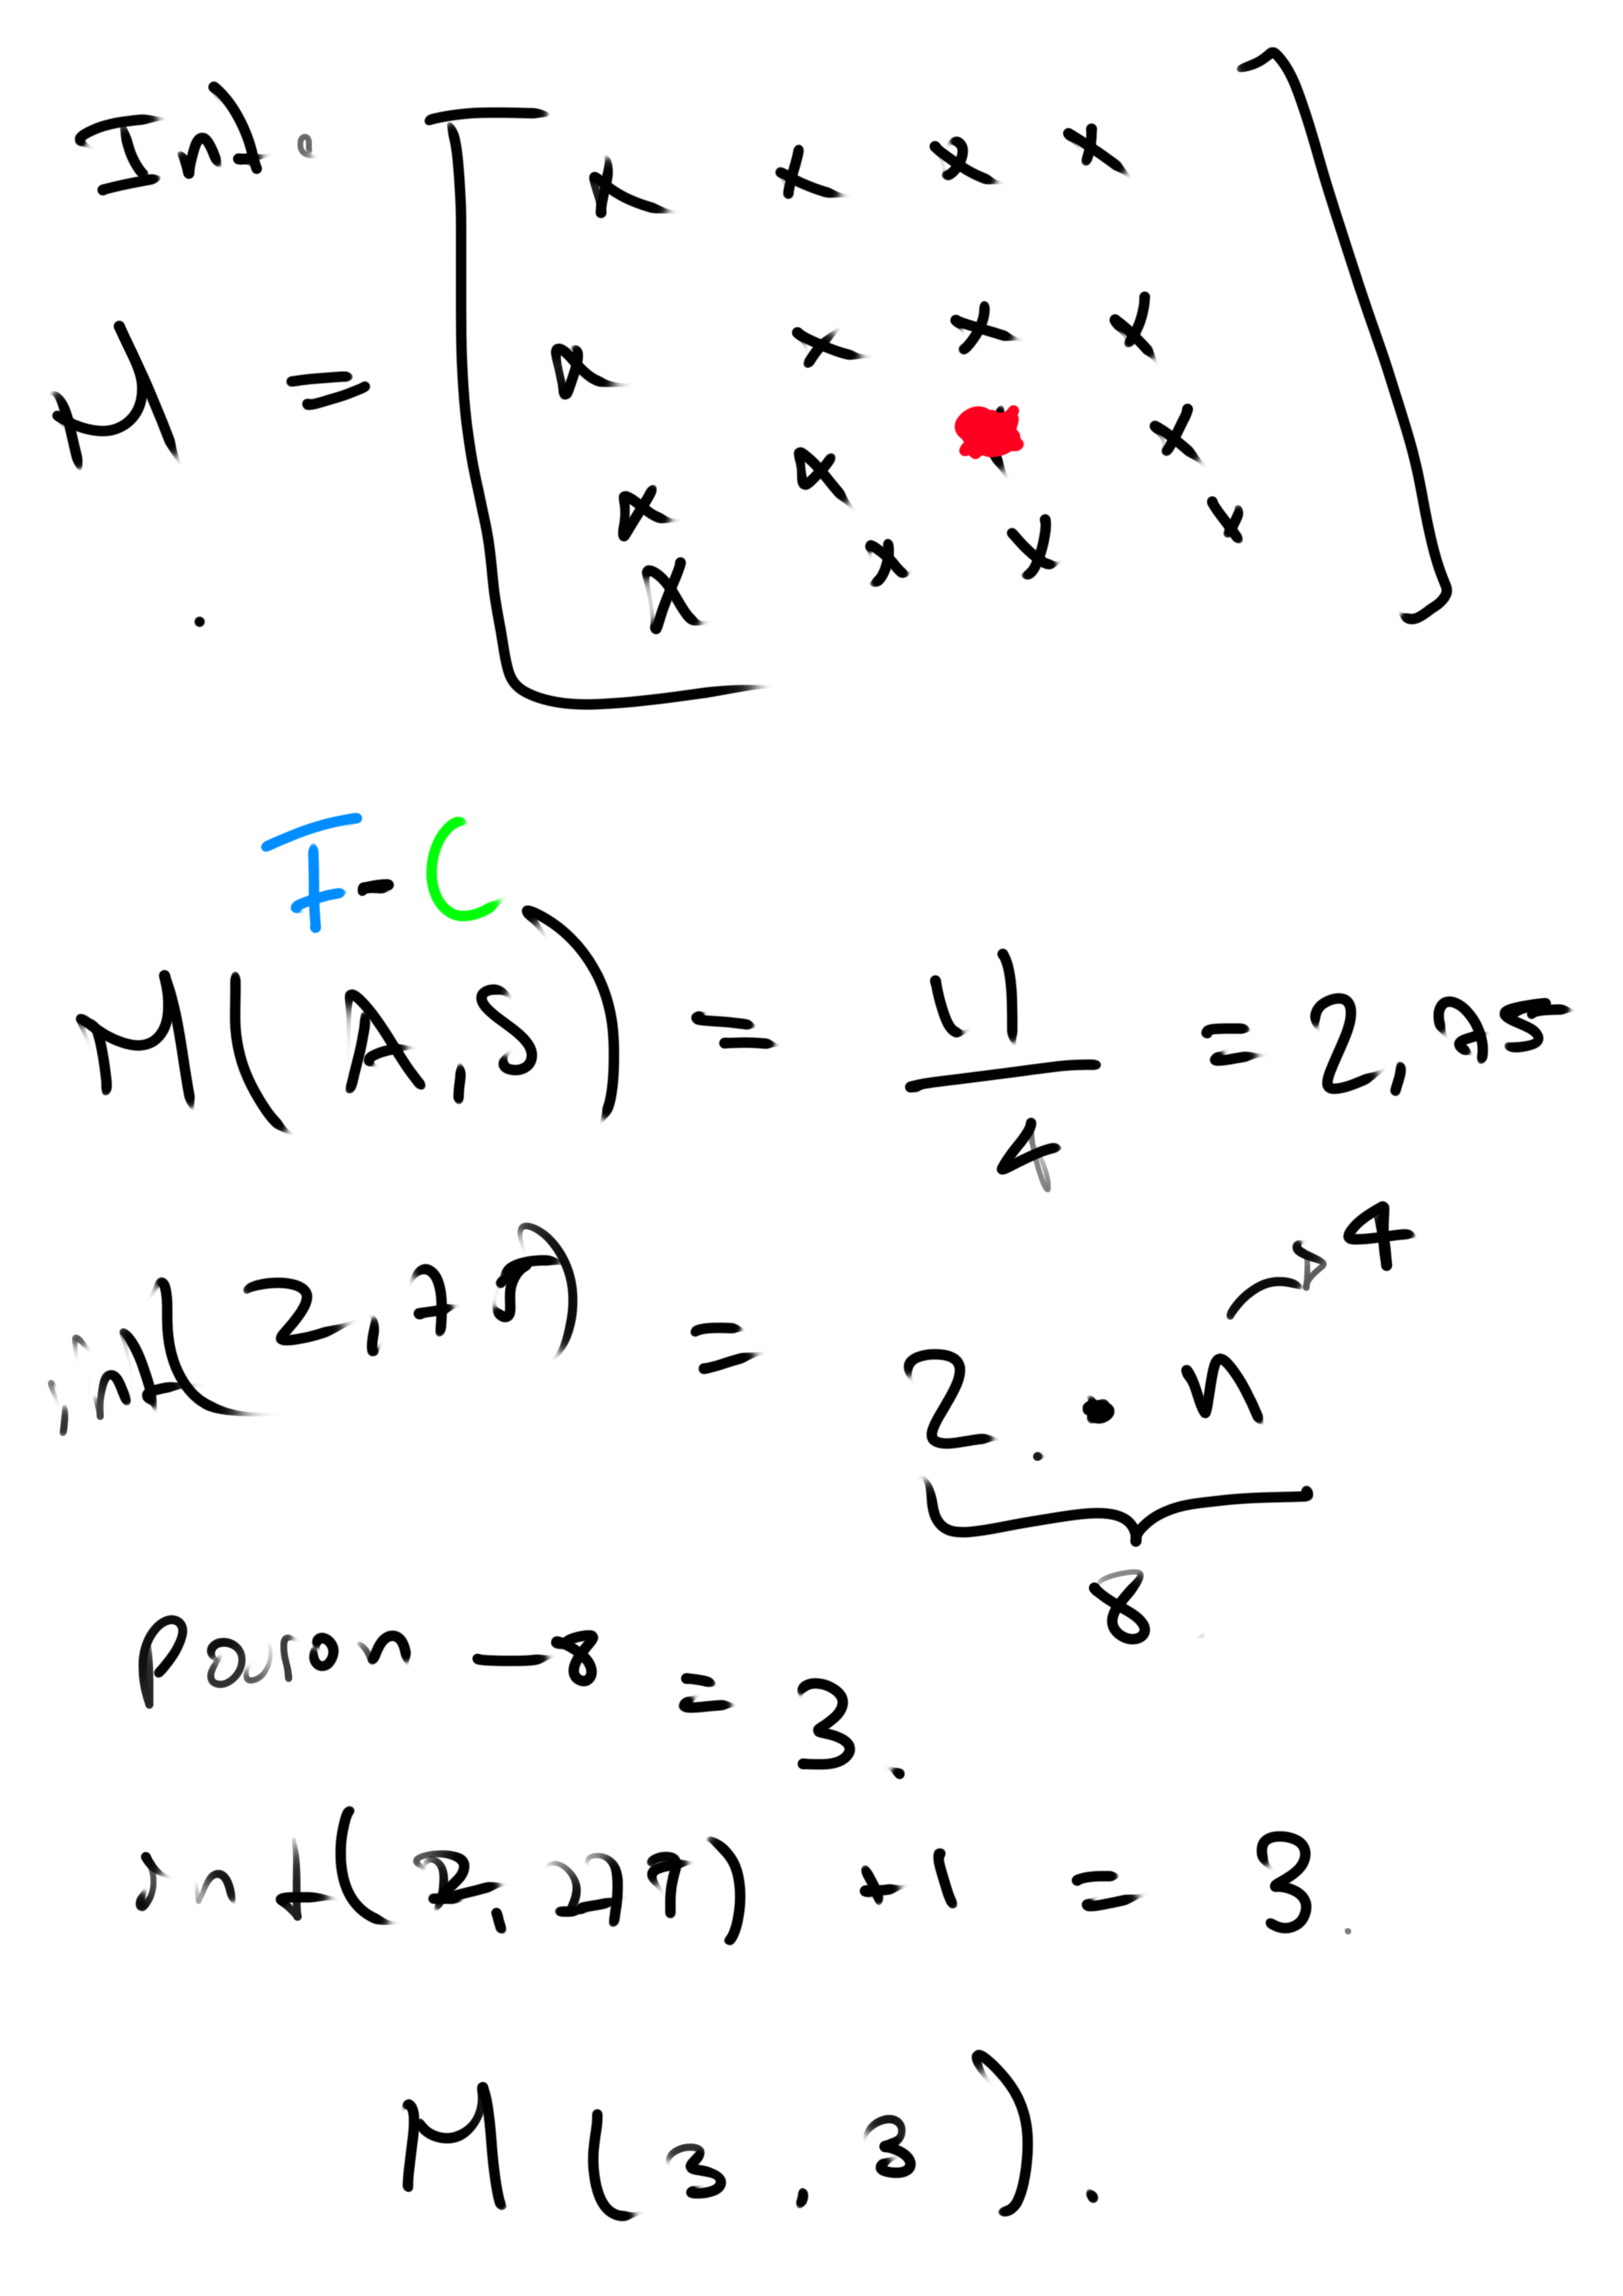 Int.
x x x x
M = x x x x
x x x
x x x x
F - C
M(A,S) = 11/4 = 2,75
int(2,75) = 2 . n → 4
8
Posion - 8 = 3.
int(2,275) + 1 = 3.
M (3,3).